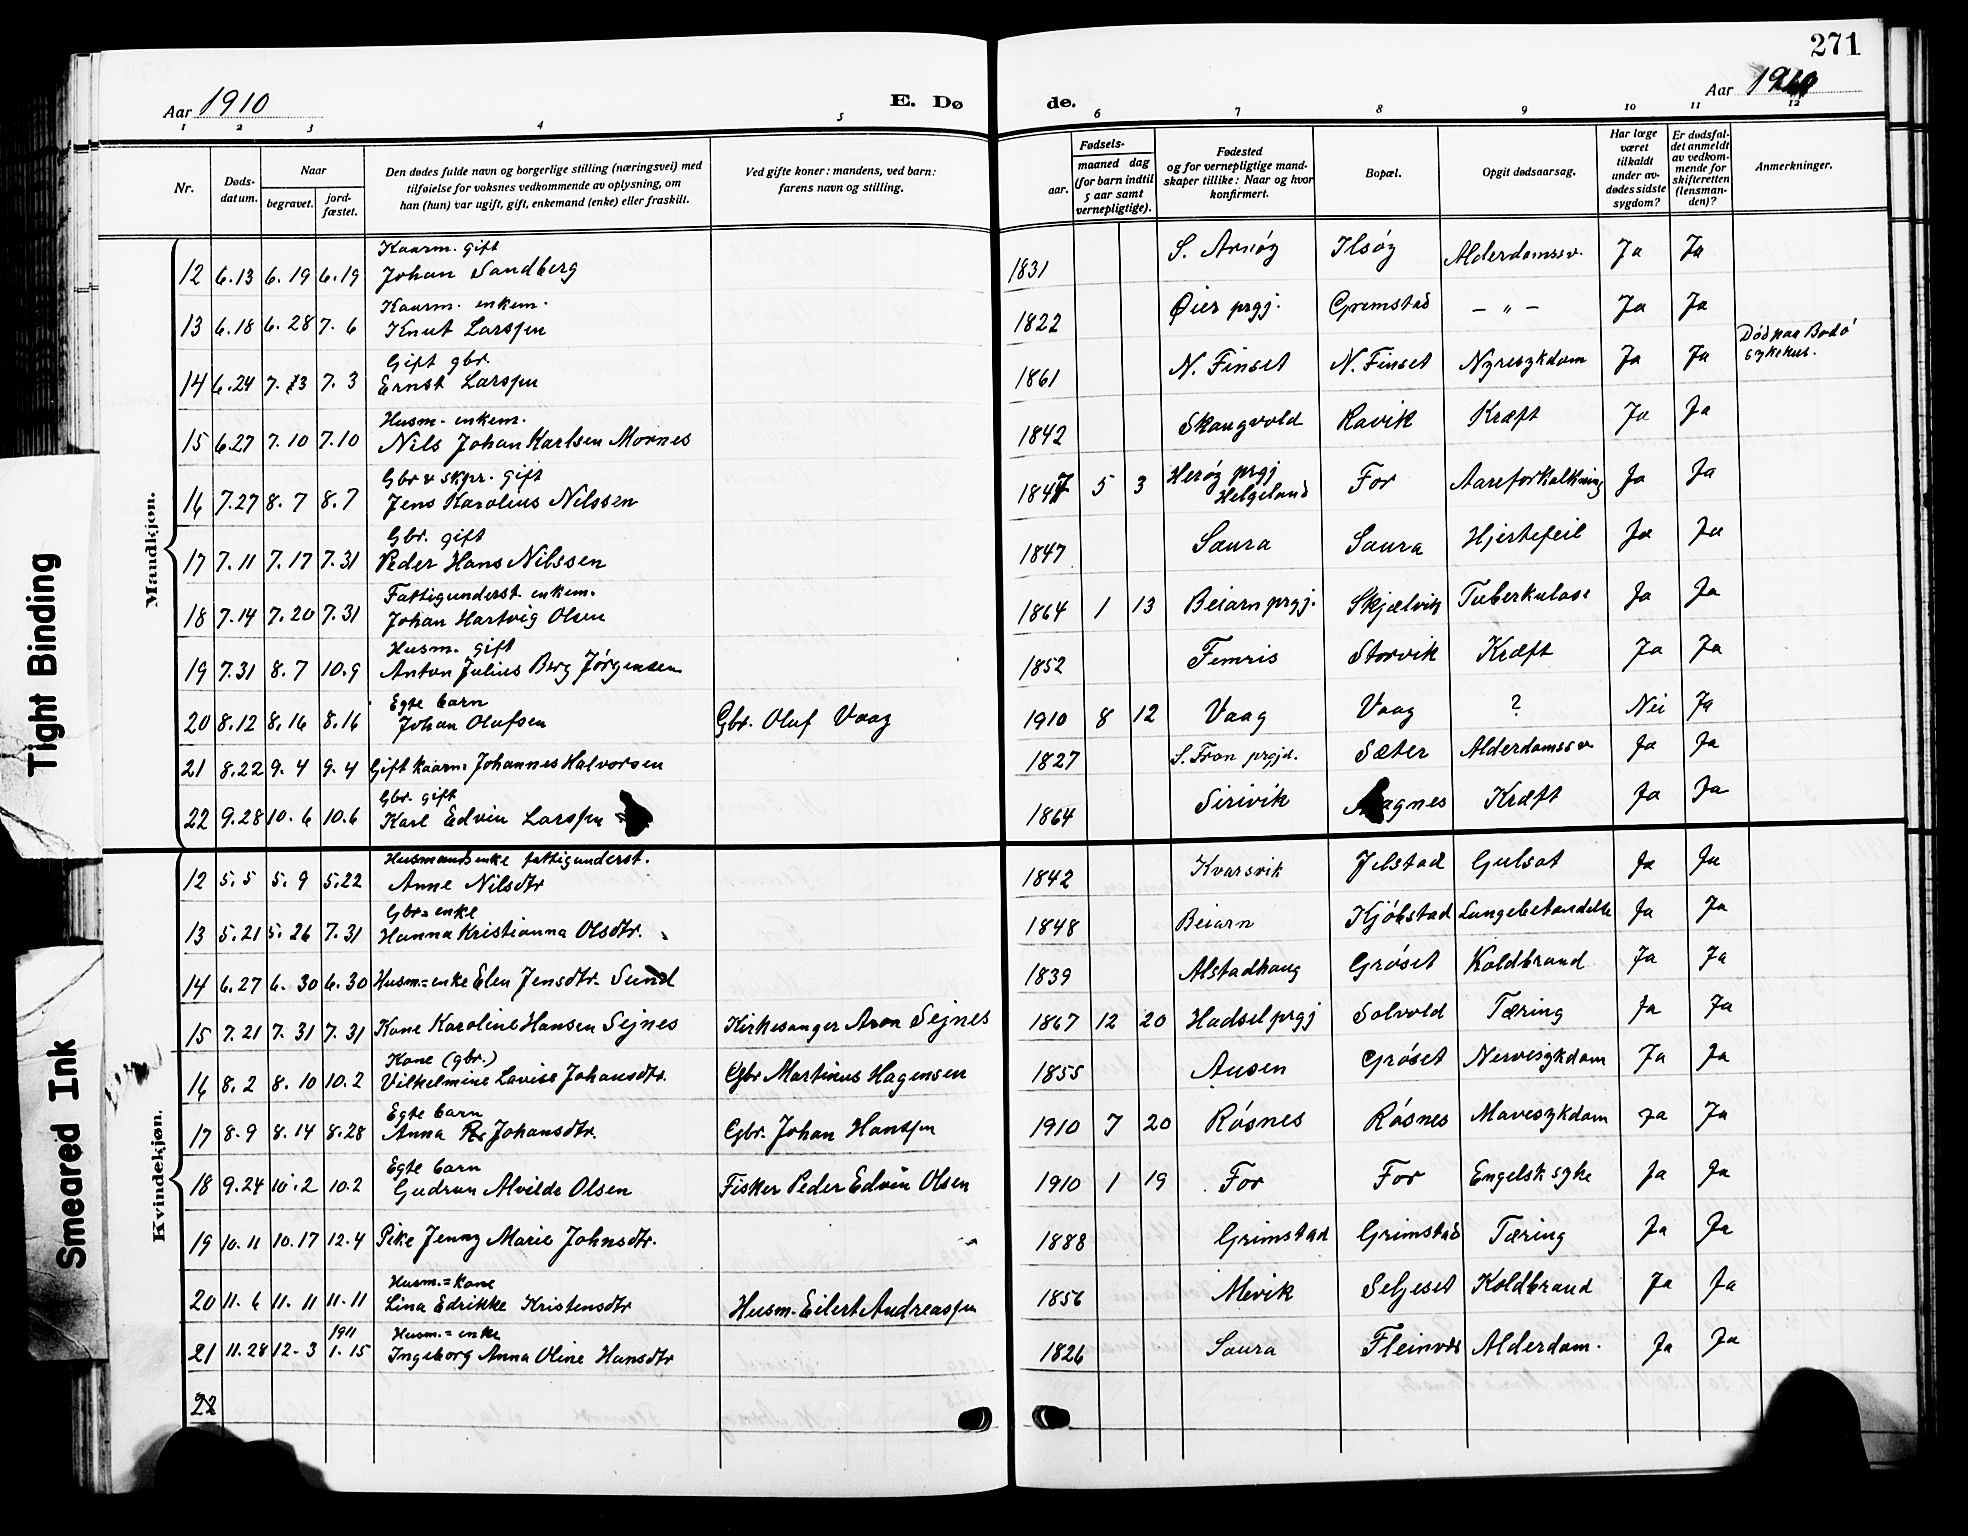 271
Aar 1910
E. Dø
de.
Aar 1910
1 2 3 4 5 6 7 8 9 10 11 12
Nr.
Døds-
datum.
Naar
begravet.
jord-
fæstet.
Den dødes fulde navn og borgerlige stilling (næringsvei) med
tilføielse for voksnes vedkommende av oplysning, om
han (hun) var ugift, gift, enkemand (enke) eller fraskilt.
Ved gifte koner: mandens, ved barn:
farens navn og stilling.
Fødsels-
aar.
maaned dag
(for barn indtil
5 aar samt
vernepligtige).
Fødested
og for vernepligtige mand-
skaper tillike: Naar og hvor
konfirmert.
Bopæl.
Opgit dødsaarsag.
Har læge
været
tilkaldt
under av-
dødes sidste
sygdom?
Er dødsfal-
det anmeldt
av vedkom-
mende for
skifteretten
(lensman-
den)?
Anmerkninger.
Mandkjøn.
Kaarm. gift
12 6.13 6.19 6.19 Johan Sandberg 1831 S. Arnøy Ilsøy Alderdomssv. Ja Ja
Kaarm. enkem.
13 6.18 6.28 7.6 Knut Larssen 1822 Øier prgj. Gremstad — „ — Ja Ja
Gift gbr.
14 6.24 7.3 7.3 Ernst Larssen 1861 N. Finset N. Finset Nyresykdom Ja Ja Død paa Bodø
sykehus.
Husm. enkem.
15 6.27 7.10 7.10 Nils Johan Karlsen Mornes 1842 Skaugvold Ravik Kræft Ja Ja
Gbr & skpr. gift
16 7.27 8.7 8.7 Jens Karolius Nilssen 1847 5 3 Herøy prgj
Helgeland For Aareforkalkning Ja Ja
Gbr. gift
17 7.11 7.17 7.31 Peder Hans Nilssen 1847 Saura Saura Hjertefeil Ja Ja
Fattigunderst enkem.
18 7.14 7.20 7.31 Johan Hartvig Olsen 1864 1 13 Beiarn prgj. Skjælvik Tuberkulose Ja Ja
Husm. gift
19 7.31 8.7 10.9 Anton Julius Berg Jørgensen 1852 Femris Storvik Kræft Ja Ja
Egte barn
20 8.12 8.16 8.16 Johan Olufsen Gbr. Oluf Vaag 1910 8 12 Vaag Vaag ? Nei Ja
21 8.22 9.4 9.4 Gift kaarm. Johannes Halvorsen 1827 S. Fron prgjd. Sæter Alderdomssv Ja Ja
Gbr. gift
22 9.28 10.6 10.6 Karl Edvin Larssen 1864 Sirivik Magnes Kræft Ja Ja
Kvindekjøn.
Husmands enke fattigunderst.
12 5.5 5.9 5.22 Anne Nilsdtr 1842 Kvarsvik Jelstad Gulsot Ja Ja
Gbr=enke
13 5.21 5.26 7.31 Hanna Kristianna Olsdtr. 1848 Beiarn Kjøkstad Lungebetændelse Ja Ja
14 6.27 6.30 6.30 Husm.=enke Elen Jensdtr. Sund 1839 Alstadhaug Grøset Koldbrand Ja Ja
15 7.21 7.31 7.31 Kone Karoline Hansen Sejnes Kirkesanger Aron Sejnes 1867 12 20 Hadsel prgj Solvold Tæring Ja Ja
Kone (gbr.)
16 8.2 8.10 10.2 Vilhelmine Lovise Johansdtr. Gbr Martinus Hagensen 1855 Ausen Grøset Nervesykdom Ja Ja
Egte barn
17 8.9 8.14 8.28 Anna Johansdtr. Gbr. Johan Hanssen 1910 7 20 Røsnes Røsnes Mavesykdom Ja Ja
Egte barn
18 9.24 10.2 10.2 Gudrun Alvilde Olsen Fisker Peder Edvin Olsen 1910 1 19 For For Engelsk syke Ja Ja
19 10.11 10.17 12.4 Pike Jenny Marie Johnsdtr. 1888 Grimstad Grimstad Tæring Ja Ja
Husm.=kone
20 11.6 11.11 11.11 Lina Edrikke Kristensdtr Husm. Eilert Andreassen 1856 Mevik Seljeset Koldbrand Ja Ja
1911 Husm.=enke
21 11.28 12.3 1.15 Ingeborg Anna Oline Hansdtr 1826 Saura Fleinvær Alderdom. Ja Ja
22
Tight Binding
Smeared Ink